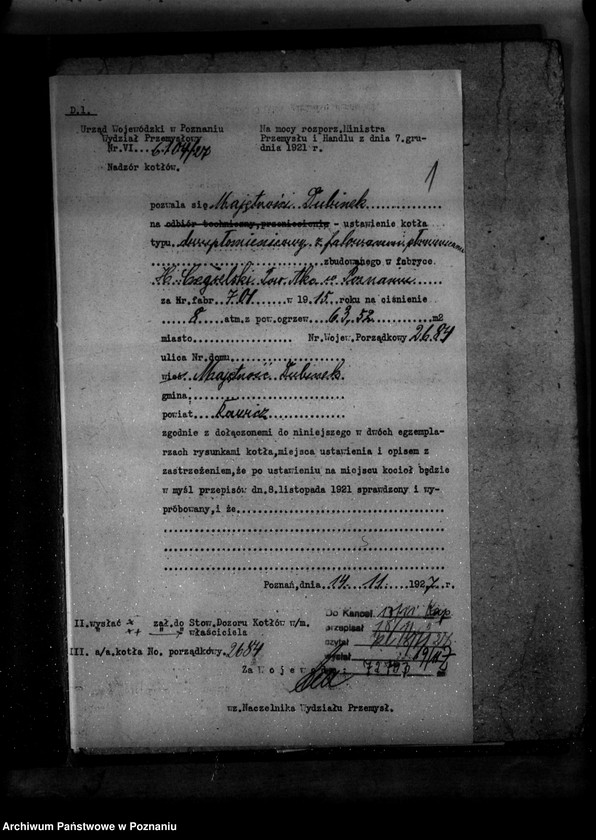 D.1.
Urząd Wojewódzki w Poznaniu
Wydział Przemysłowy
Nr.VI.... 6104/27
Nadzór kotłów.
Na mocy rozporz.Ministra
Przemysłu i Handlu z dnia 7.gru-
dnia 1921 r.
1
pozwala się Majętności Dubinek
na odbiór techniczny,przeniesienie - ustawienie kotła
typu dwupłomienicowy z falowanemi płomienicami
zbudowanego w fabryce
H. Cegielski Tow. Akc w Poznaniu
za Nr.fabr 701 w 1915 roku na ciśnienie
8 atm.z pow.ogrzew 63,52 m2
miasto Nr.Wojew.Porządkowy 2684
ulica Nr.domu
wieś Majętność Dubinek
gmina
powiat
zgodnie z dołączonemi do niniejszego w dwóch egzempla-
rzach rysunkami kotła,miejsca ustawienia i opisem z
zastrzeżeniem,że po ustawieniu na miejscu kocioł będzie
w myśl przepisów dn.8.listopada 1921 sprawdzony i wy-
próbowany,i że
Poznań,dnia 14 11 1927 r.
II.wysłać zał.do Stow.Dozoru Kotłów w/m.
właściciela
III. a/a.kotła No. porządkowy. 2684
Do Kancel.
przepisał 18/11
czytał
Za Wojew
wz.Naczelnika Wydziału Przemysł.
Archiwum Państwowe w Poznaniu